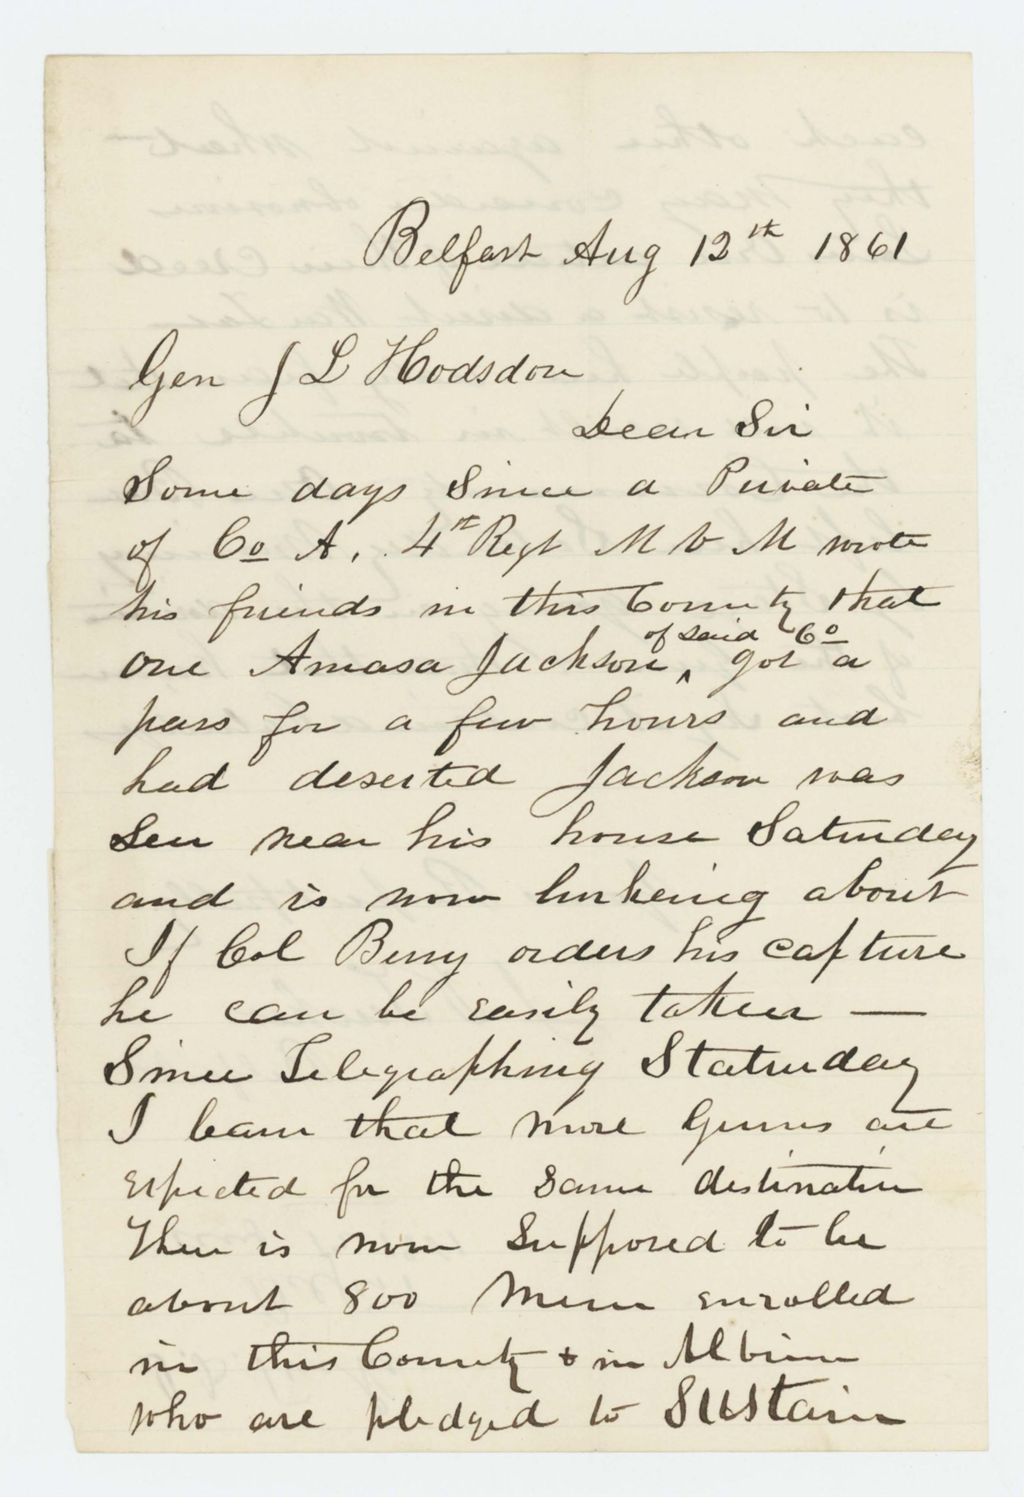 Belfast Aug 12th 1861
Gen J L Hodsdon
Dear Sir
Some days Since a Private
of Co A, 4th Regt M V M wrote
his friends in this County that
one Amasa Jackson ^ of said Co got a
pass for a few hours and
had deserted Jackson was
Seen near his house Saturday
and is now lurkeing about
If Col Berry orders his capture
he can be easily taken —
Since Telegraphing Staturday
I learn that more Gunns are
expected for the same destination
There is now Supposed to be
about 800 Menn enrolled
in this County & in Albion
who are pledged to Sustain